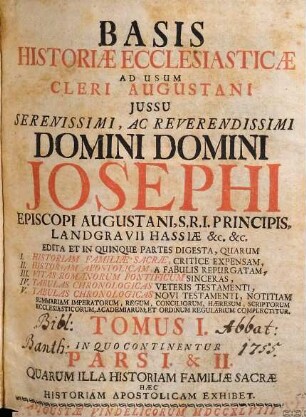 BASIS
HISTORIÆ ECCLESIASTICÆ
AD USUM
CLERI AUGUSTANI
JUSSU
SERENISSIMI, AC REVERENDISSIMI
DOMINI DOMINI
JOSEPHI
EPISCOPI AUGUSTANI, S.R.I. PRINCIPIS,
LANDGRAVII HASSIÆ &c. &c.
EDITA ET IN QUINQUE PARTES DIGESTA, QUARUM
I. HISTORIAM FAMILIÆ SACRÆ, CRITICE EXPENSAM,
II. HISTORIAM APOSTOLICAM, A FABULIS REPURGATAM,
III. VITAS ROMANORUM PONTIFICUM SINCERAS,
IV. TABULAS CHRONOLOGICAS VETERIS TESTAMENTI,
V. TABULAS CHRONOLOGICAS NOVI TESTAMENTI, NOTITIAM
SUMMARIAM IMPERATORUM, REGUM, CONCILIORUM, HÆRESUM, SCRIPTORUM
ECCLESIASTICORUM, ACADEMIARUM, ET ORDINUM REGULARIUM COMPLECTITUR.
TOMUS I.
Bibl: Abbat:
Banth: 1755.
IN QUO CONTINENTUR
PARS I. & II.
QUARUM ILLA HISTORIAM FAMILIÆ SACRÆ
HÆC
HISTORIAM APOSTOLICAM EXHIBET.